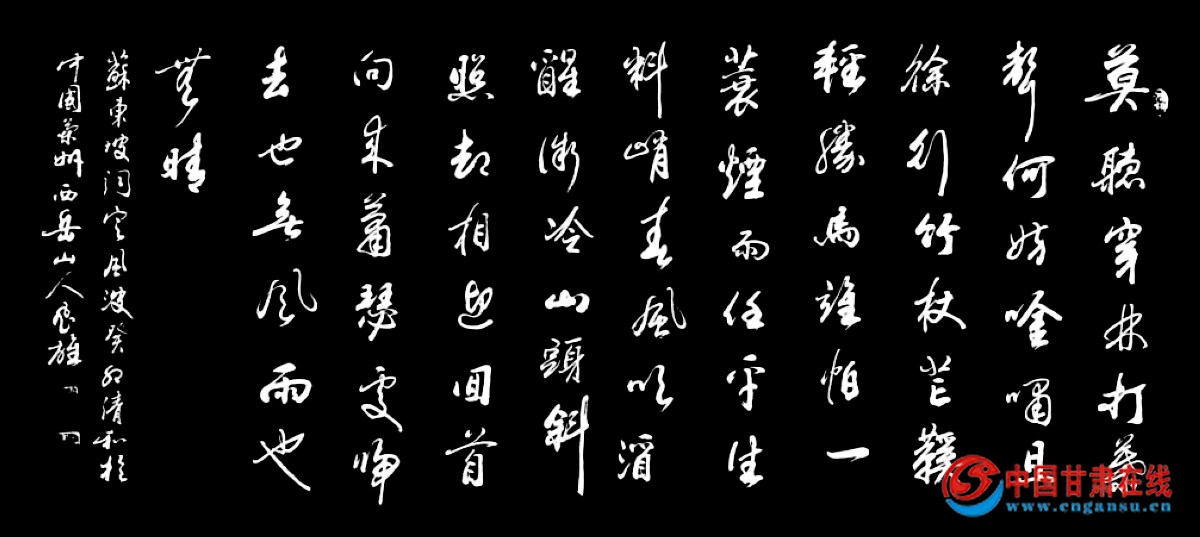 莫聽穿林打葉
聲何妨唫嘯且
徐行竹杖芒鞵
輕勝馬誰怕一
蓑煙雨任平生
料峭春風吹酒
醒微冷山頭斜
照却相迎回首
向来蕭瑟處歸
去也無風雨也
無晴
蘇東坡詞定風波癸卯清和於
中國蘭州西岳山人雄
中国甘肃在线
www.cngansu.cn